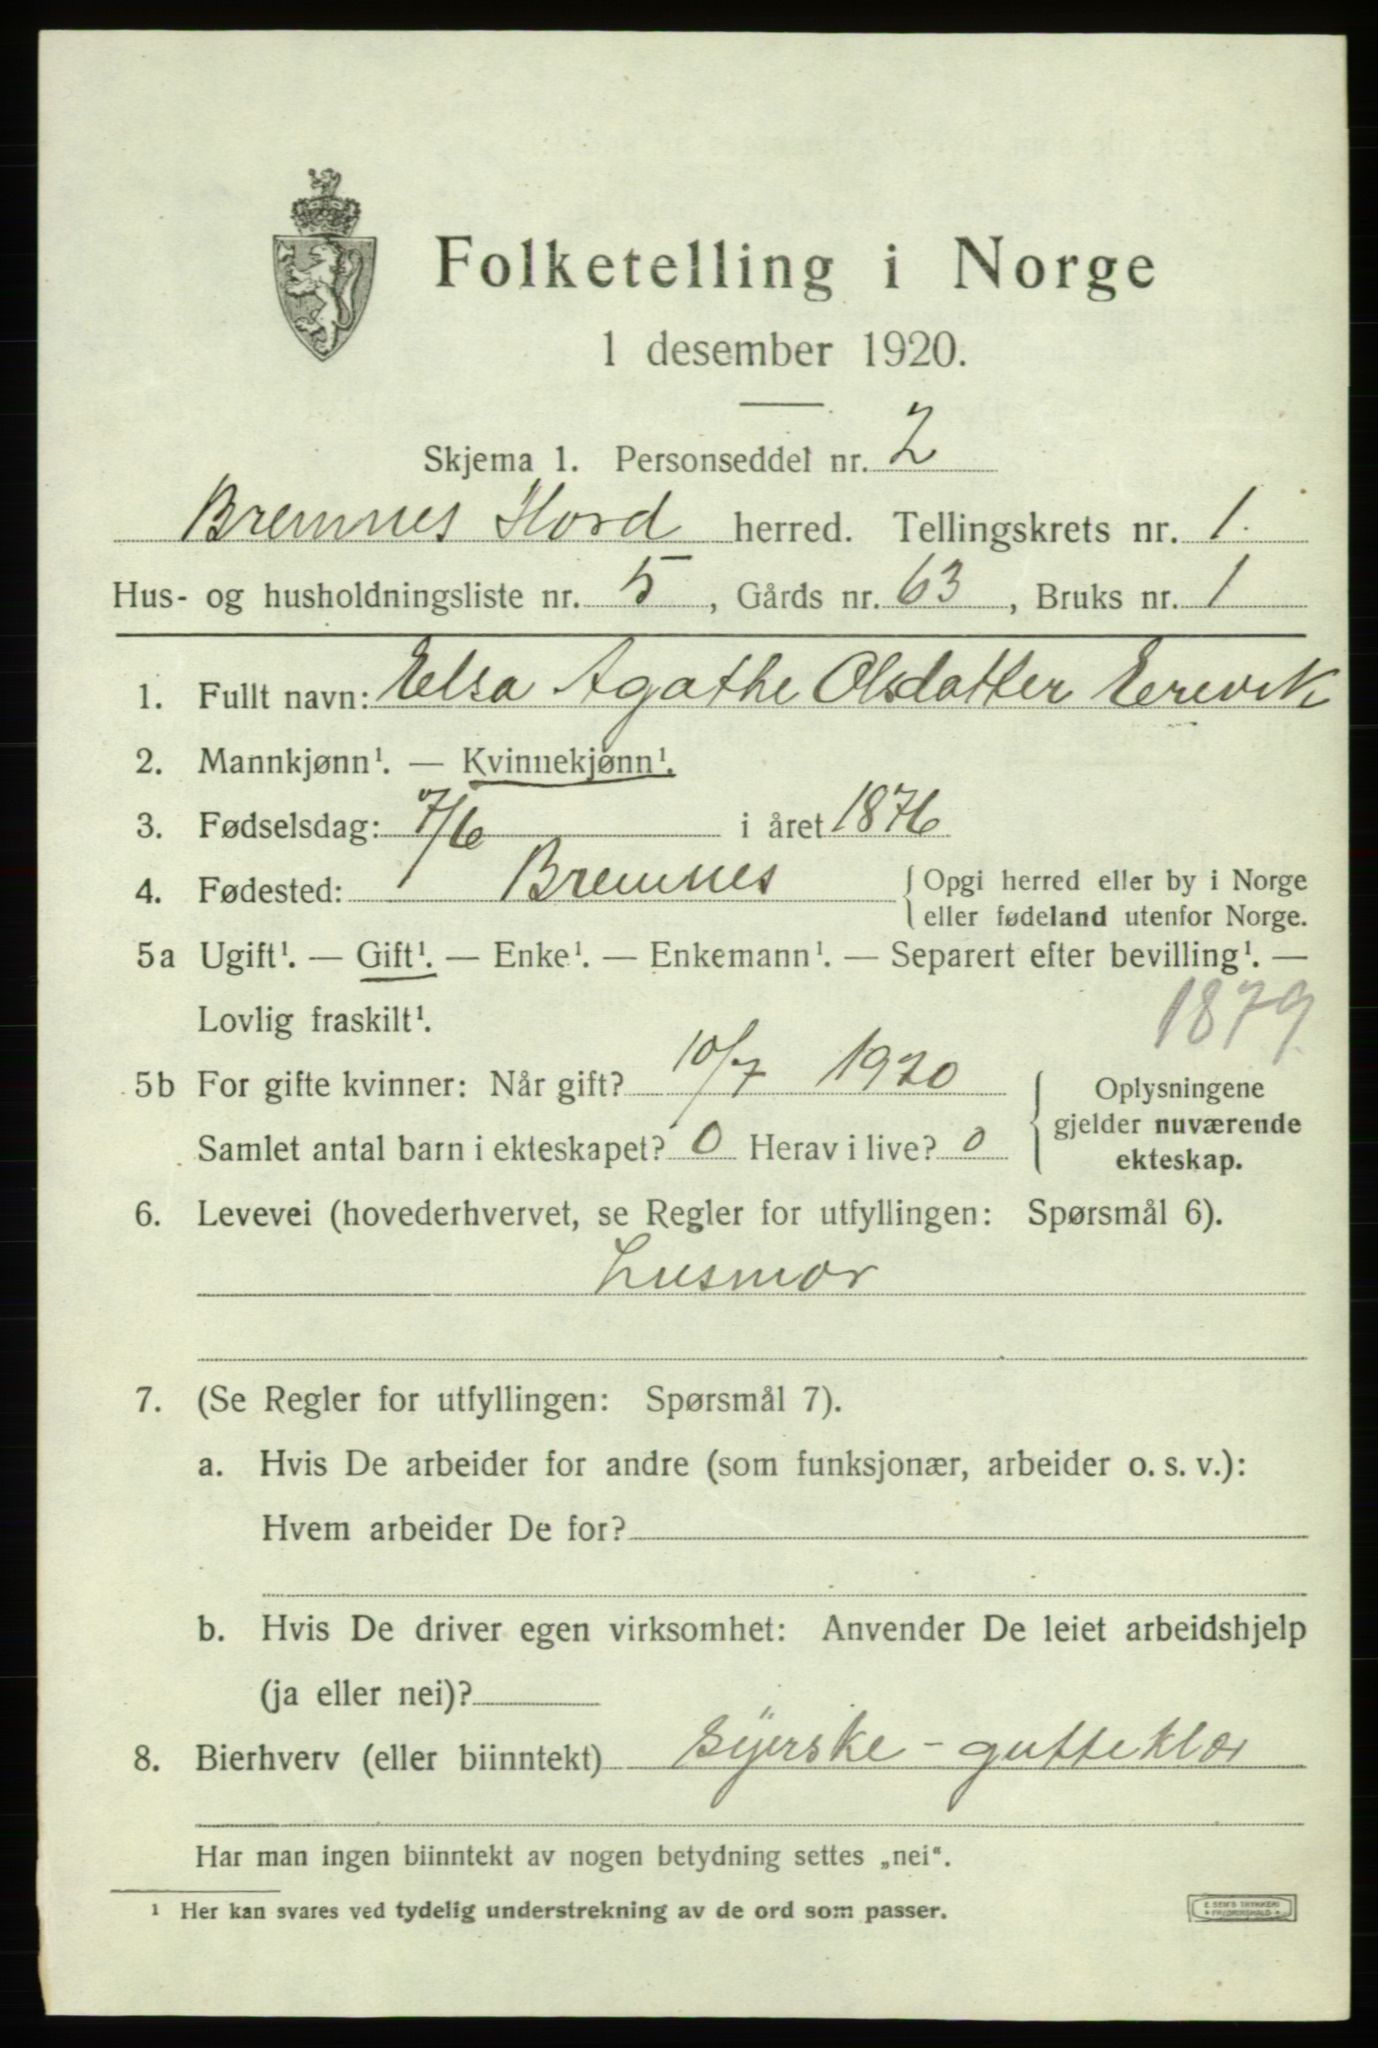 Folketelling i Norge
1 desember 1920.
Skjema 1. Personseddel nr. 2
Bremnes Hord herred. Tellingskrets nr. 1.
Hus- og husholdningsliste nr. 5, Gårds nr. 63, Bruks nr. 1
1. Fullt navn: Elsa Agathe Olsdatter Ererik
2. Mannkjønn¹. — Kvinnekjønn¹.
3. Fødselsdag: 7/6 i året 1876
4. Fødested: Bremnes { Opgi herred eller by i Norge
eller fødeland utenfor Norge.
5a Ugift¹. — Gift¹. — Enke¹. — Enkemann¹. — Separert efter bevilling¹. —
Lovlig fraskilt¹. 1879
5b For gifte kvinner: Når gift? 10/7 1920 { Oplysningene
gjelder nuværende
Samlet antal barn i ekteskapet? 0 Herav i live? 0
ekteskap.
6. Levevei (hovederhvervet, se Regler for utfyllingen: Spørsmål 6).
Husmor
7. (Se Regler for utfyllingen: Spørsmål 7).
a. Hvis De arbeider for andre (som funksjonær, arbeider o. s. v.):
Hvem arbeider De for?
b. Hvis De driver egen virksomhet: Anvender De leiet arbeidshjelp
(ja eller nei)?
8. Bierhverv (eller biinntekt) Syerske - gutteklær
Har man ingen biinntekt av nogen betydning settes „nei“.
¹ Her kan svares ved tydelig understrekning av de ord som passer.
E. SEM'S TRYKKERI
FREDRIKSHALD